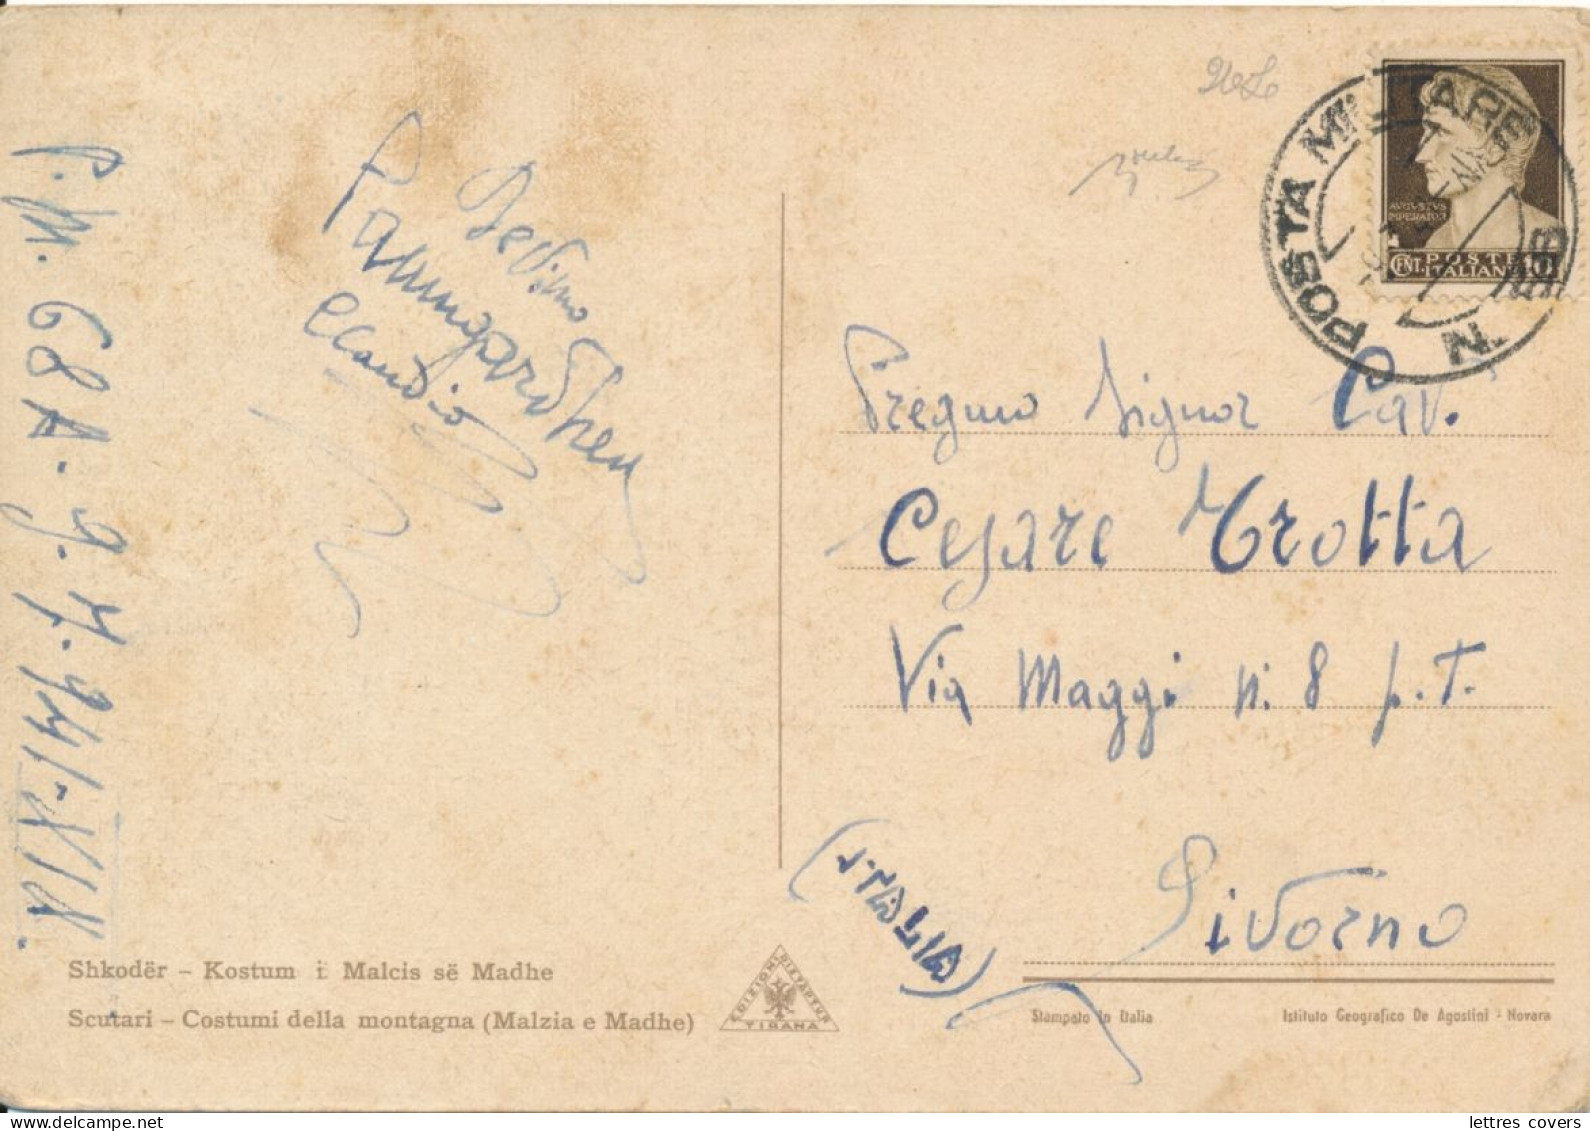 P.M. 68A. 9.7.941-XIX.
Claudio
POSTA MILITARE
N.
AVGVSTVS
IMPERATOR
CENT. 10
POSTE
ITALIANE
Pregmo Signor Cav.
Cesare Trotta
Via Maggi n. 8 p.T.
(ITALIA)
Livorno
Shkodër – Kostum i Malcis së Madhe
Scutari – Costumi della montagna (Malzia e Madhe)
EDIZIONI DISTAPTUR
TIRANA
Stampato in Italia
Istituto Geografico De Agostini - Novara
lettres covers